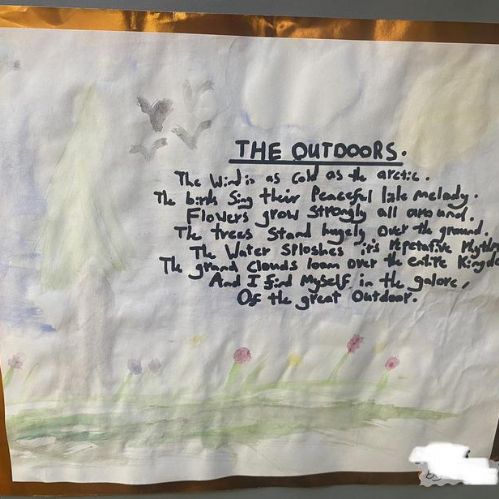 THE OUTDOORS.
The Wind is as Cold as the arctic.
The birds Sing their Peaceful little Melody.
Flowers grow Strongly all around.
The trees Stand hugely Over the ground.
The Water Sploshes it's repetative
The grand Clouds loom over the entire
And I find Myself in the galore,
Of the great Outdoor.